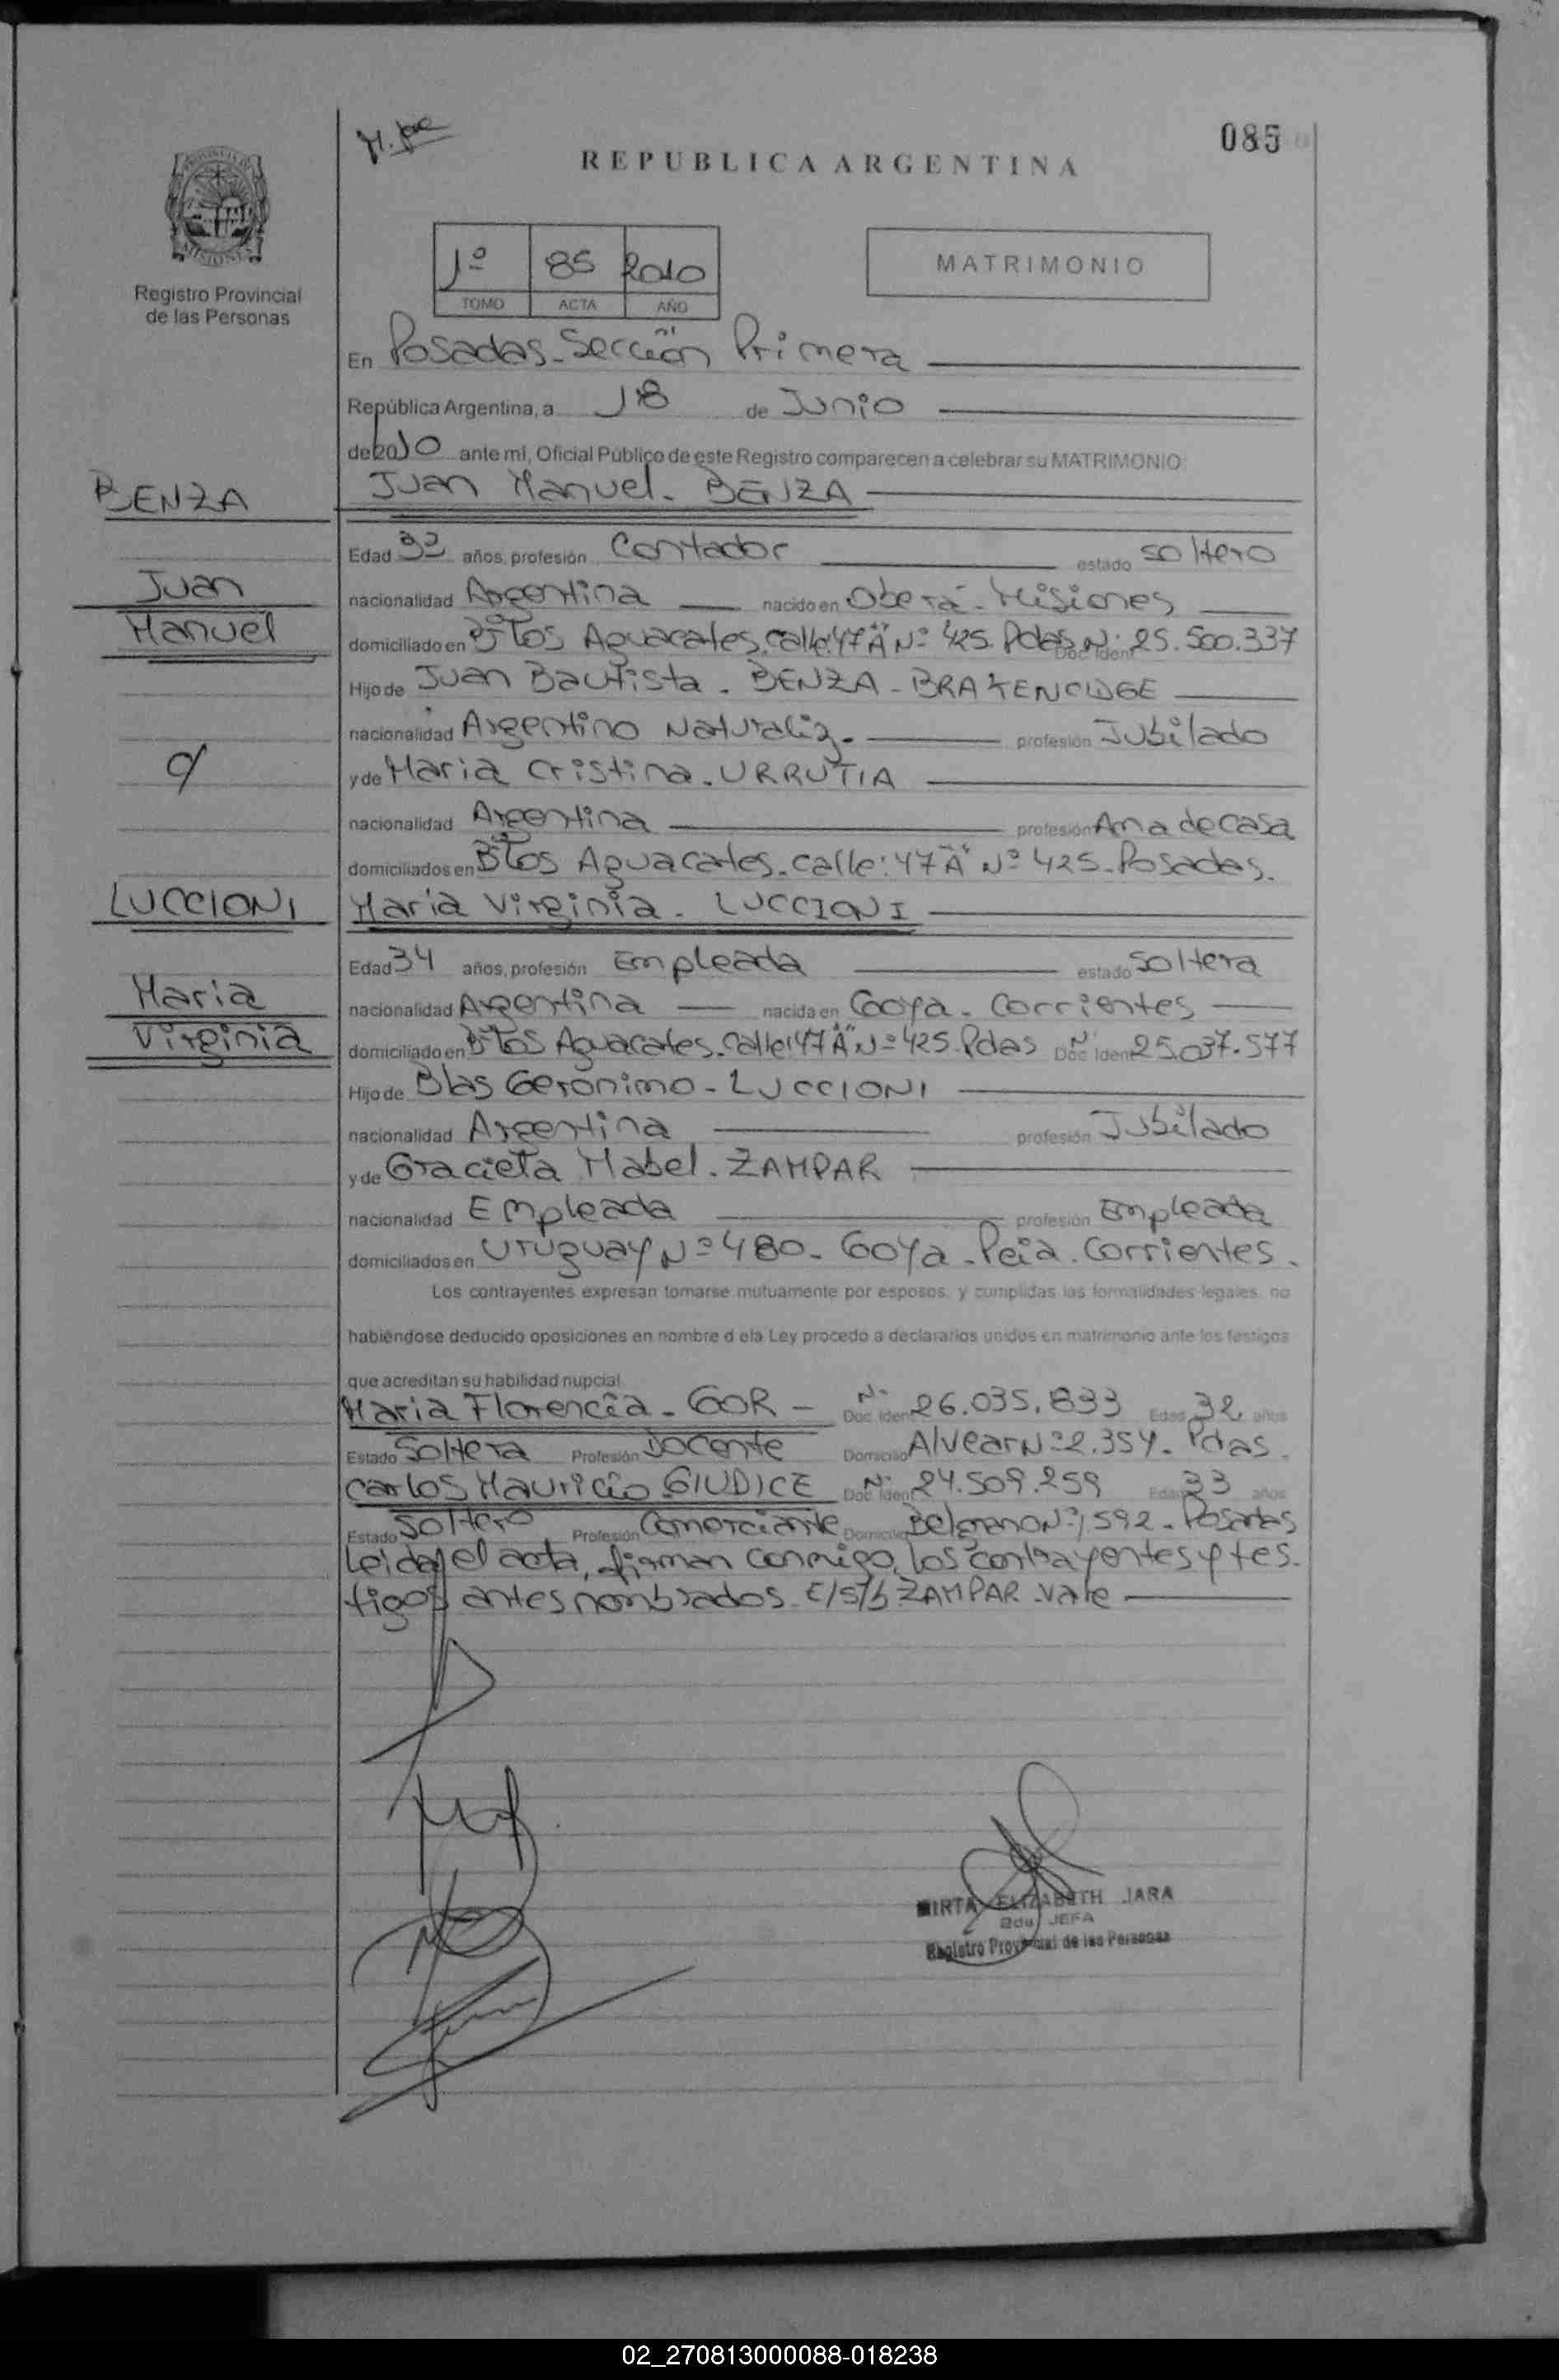 085
REPUBLICA ARGENTINA
1º 85 2010
TOMO ACTA AÑO
MATRIMONIO
Registro Provincial
de las Personas
En Posadas - Sección Primera
República Argentina, a 18 de Junio
de 2010 ante mí, Oficial Público de este Registro comparecen a celebrar su MATRIMONIO
BENZA
Juan Manuel. BENZA
Edad 32 años, profesión Contador estado soltero
Juan
nacionalidad Argentina nacido en Oberá - Misiones
Manuel
domiciliado en Bº Los Aguacates. calle: 47 "A" Nº 425. Pdas Doc Ident Nº 25.500.337
Hijo de Juan Bautista. BENZA - BRAKENCIDGE
nacionalidad Argentino Naturaliz. profesión Jubilado
c/
y de Maria Cristina. URRUTIA
nacionalidad Argentina profesión Ama de casa
domiciliados en Bº Los Aguacates. calle: 47 "A" Nº 425 - Posadas.
LUCCIONI
Maria Virginia. LUCCIONI
Edad 34 años, profesión Empleada estado Soltera
Maria
nacionalidad Argentina nacida en Goya - Corrientes
Virginia
domiciliado en Bº Los Aguacates. Calle: 47 "A" Nº 425. Pdas Doc Ident Nº 25.037.577
Hijo de Blas Geronimo - LUCCIONI
nacionalidad Argentina profesión Jubilado
y de Graciela Mabel. ZAMPAR
nacionalidad Empleada profesión Empleada
domiciliados en Uruguay Nº 480 - Goya - Pcia. Corrientes.
Los contrayentes expresan tomarse mutuamente por esposos, y cumplidas las formalidades legales, no
habiéndose deducido oposiciones en nombre d ela Ley procedo a declararlos unidos en matrimonio ante los testigos
que acreditan su habilidad nupcial
Maria Florencia - GOR - Doc Ident Nº 26.035.833 Edad 32 años
Estado Soltera Profesión Docente Domicilio Alvear Nº 2.354. Pdas.
Carlos Mauricio GIUDICE Doc Ident Nº 24.509.259 Edad 33 años
Estado Soltero Profesión Comerciante Domicilio Belgrano Nº 1.592 - Posadas
Leida el acta, firman conmigo, los contrayentes y tes.
tigos antes nombrados. E/S/b ZAMPAR. vale
MIRTA ELIZABETH JARA
2da JEFA
Registro Provincial de las Personas
02_270813000088-018238